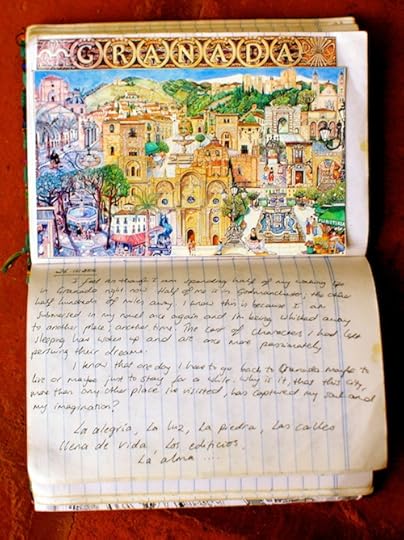 GRANADA
I feel as though I am spending half of my waking life
in Granada right now. Half of me is in Godmanchester, the other
half hundreds of miles away. I know this is because I am
submersed in my novel once again and I'm being whisked away
to another place; another time. The cast of characters I had left
sleeping has woken up and are once more passionately
pursuing their dreams.
I know that one day I have to go back to Granada maybe to
live or maybe just to stay for a while. Why is it, that this city,
more than any other place I've visited, has captured my soul and
my imagination?
La alegría, La luz, La piedra, Las calles
llena de vida, Los edificios,
La alma ....